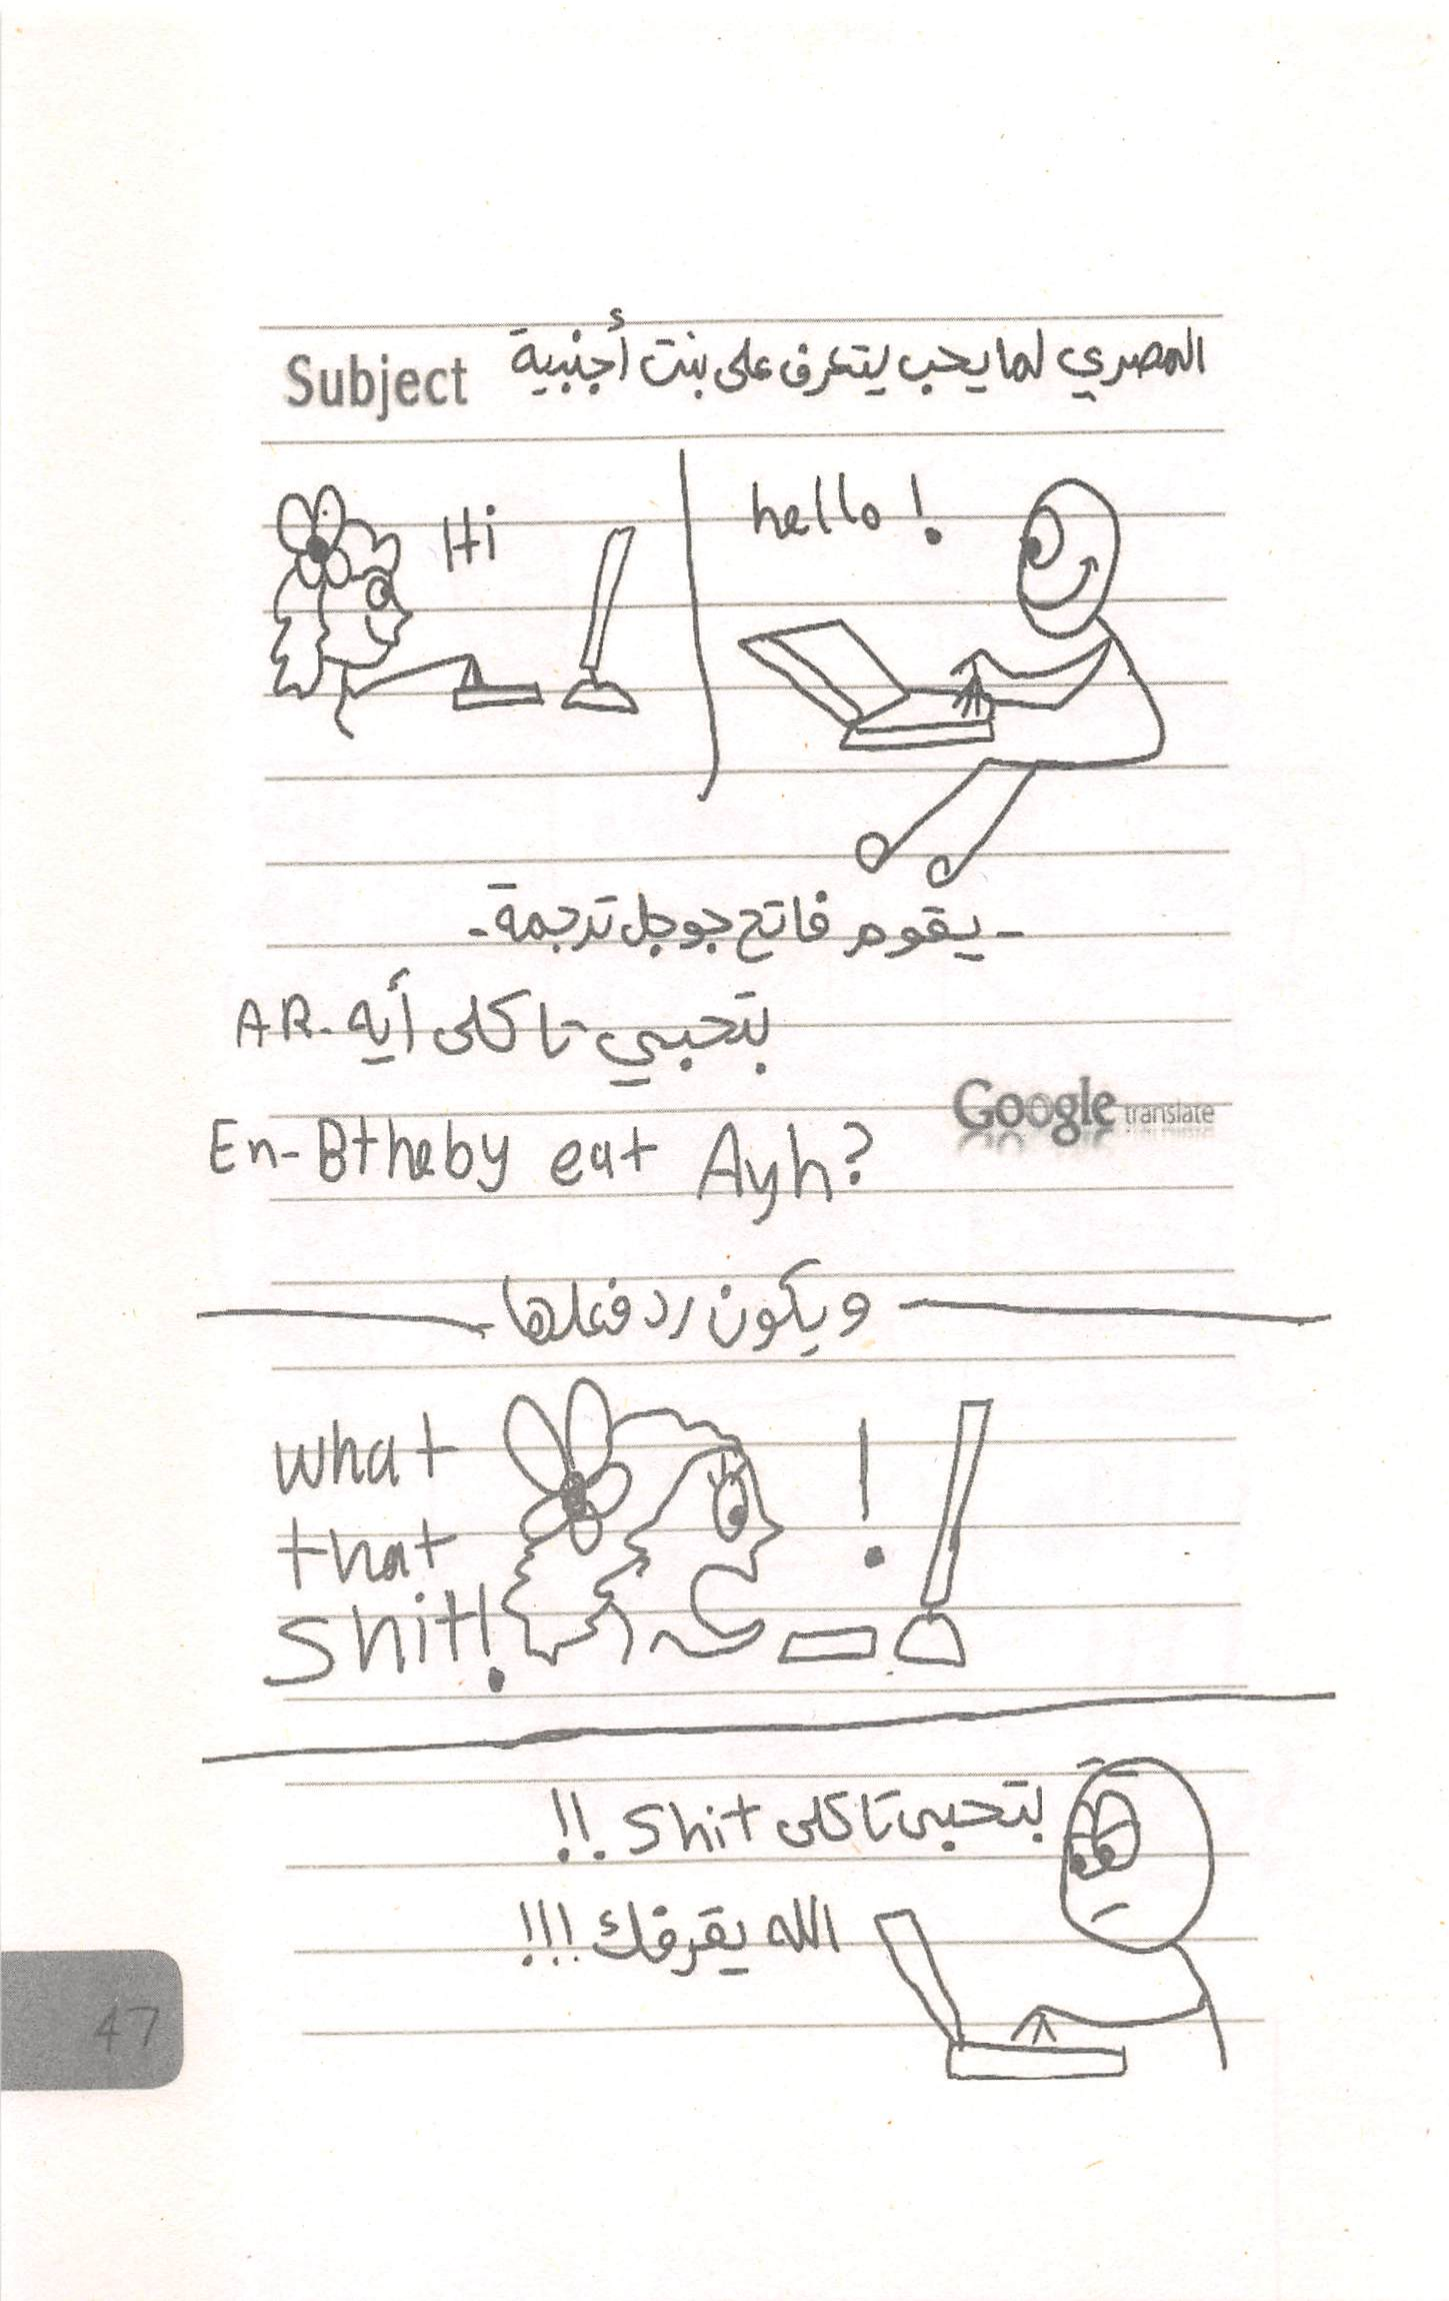 Subject المصري لما يحب يتعرف على بنت أجنبية
hello!
Hi
- يقوم فاتح جوجل ترجمة -
AR- بتحبي تاكلى أيه
Google translate
En- Btheby eat Ayh?
ويكون رد فعلها
what
that
shit!
!
بتحبى تاكلى shit !!
الله يقرفك !!!
47